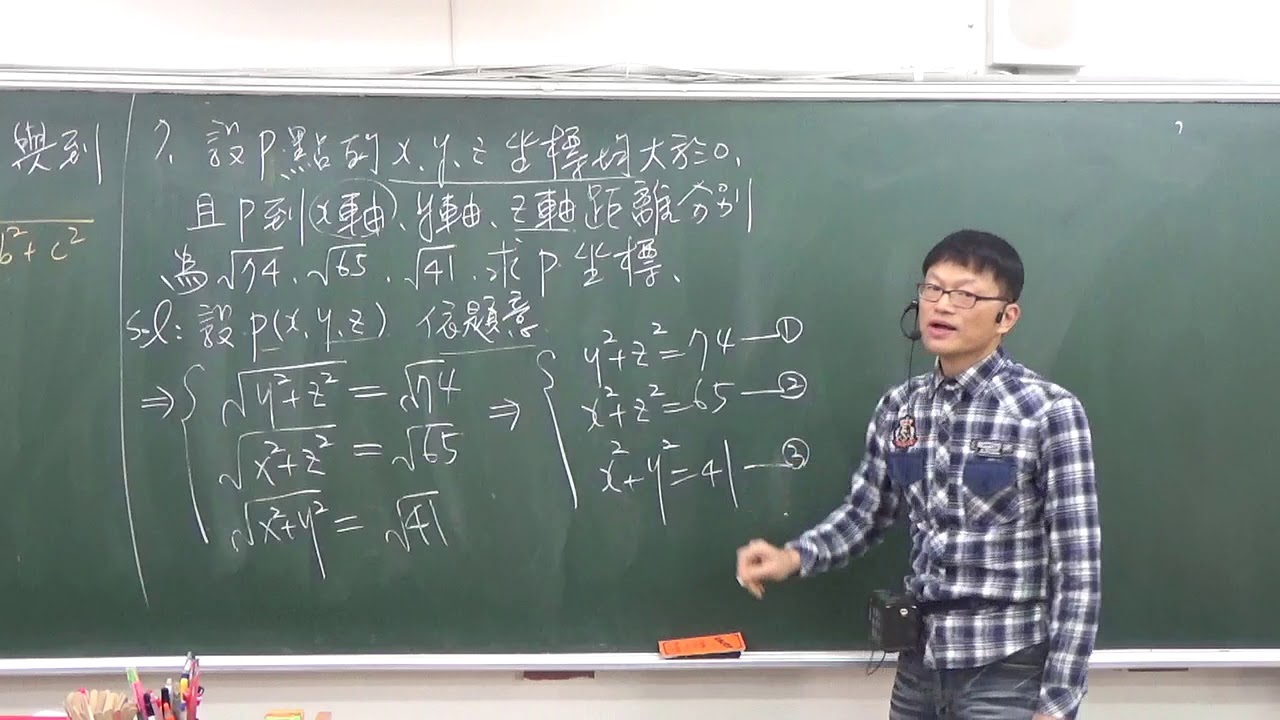 與到
b²+c²
7. 設P點的x、y、z坐標均大於0,
且P到x軸、y軸、z軸距離分別
為√74、√65、√41,求P坐標、
Sol: 設P(x,y,z) 依題意
⇒{ √(y²+z²) = √74
√(x²+z²) = √65
√(x²+y²) = √41
⇒{ y²+z²=74 —①
x²+z²=65 —②
x²+y²=41 —③